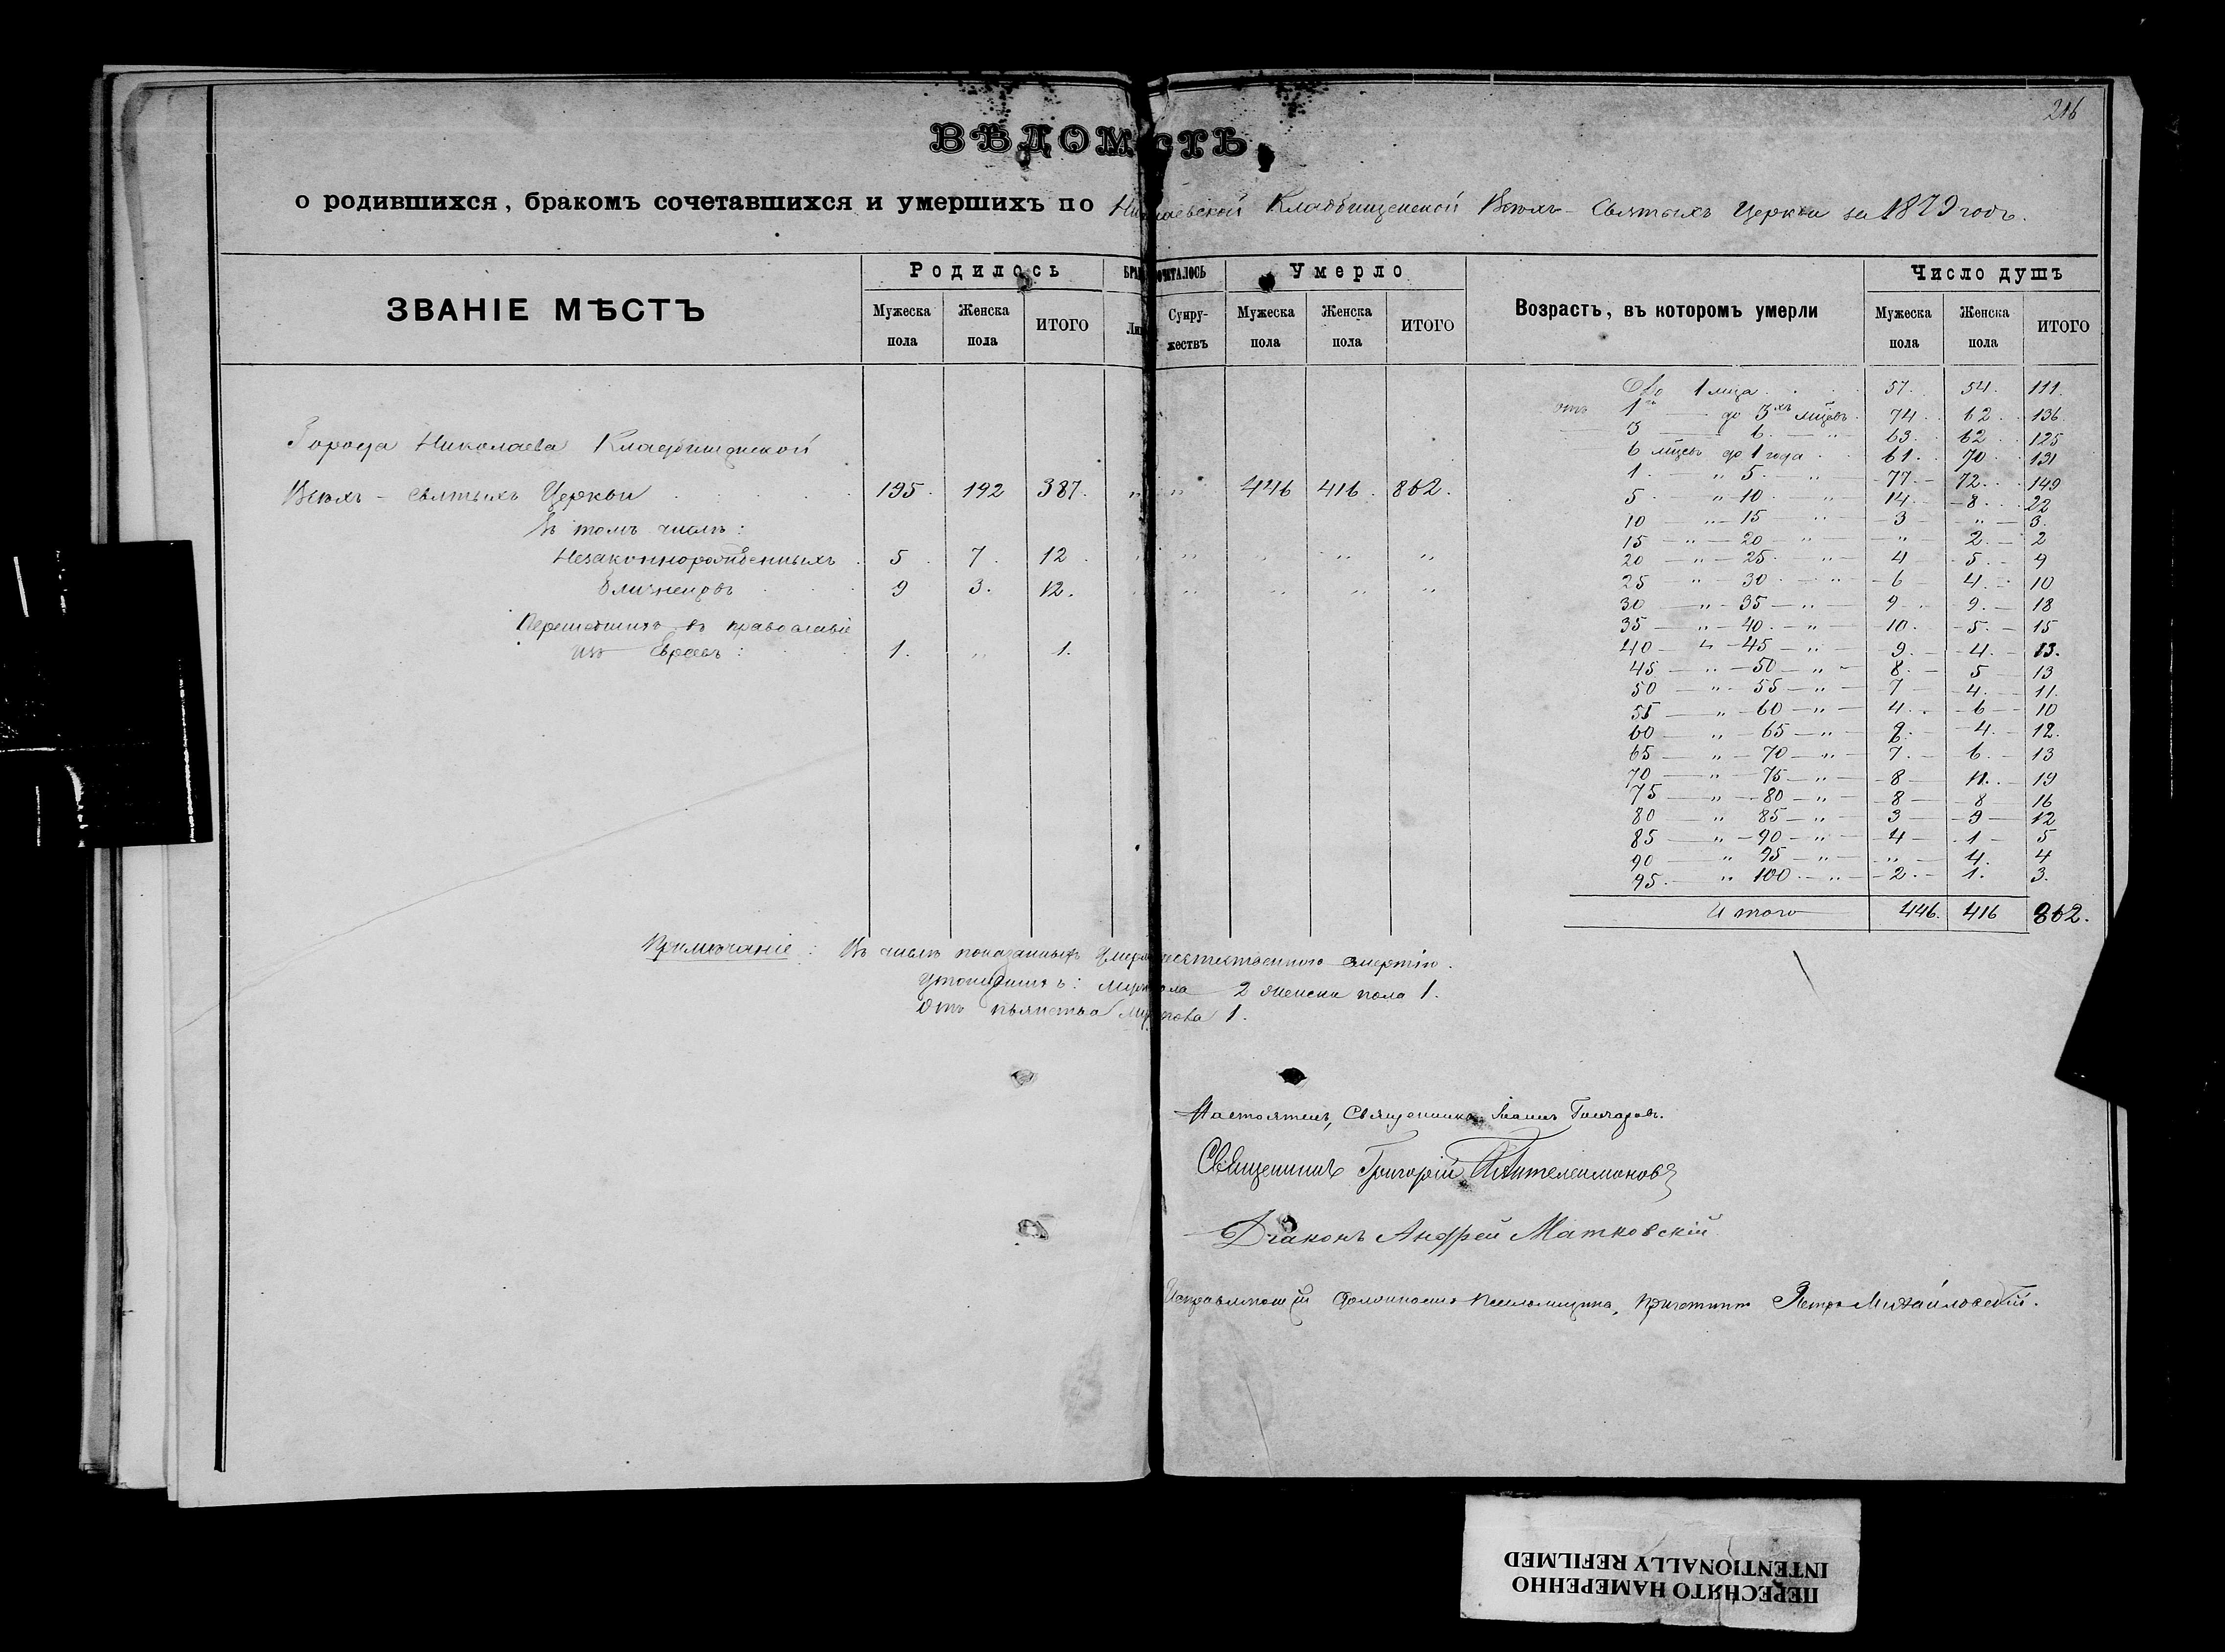 216
ВѢДОМОСТЬ
о родившихся, бракомъ сочетавшихся и умершихъ по Николаевской Кладбищенской Всѣхъ-Святыхъ Церкви за 1879 годъ.
ЗВАНІЕ МѢСТЪ Родилось Умерло Возрастъ, въ которомъ умерли Число душъ
Мужеска пола Женска пола ИТОГО Супру-жествъ Мужеска пола Женска пола ИТОГО Мужеска пола Женска пола ИТОГО
Города Николаева Кладбищенской
Всѣхъ-святыхъ Церкви 195. 192 387. „ „ 446 416. 862.
Въ томъ числѣ:
Незаконнорожденныхъ 5 7. 12 „ „ „ „ „
Близнецовъ 9 3. 12. „ „ „ „ „
Перешедшихъ въ православіе
изъ Евреевъ: 1. „ 1.
До 1 мца 57. 54. 111.
отъ 1го до 3хъ мцевъ 74 62 136.
3 — 6 — „ 63. 62 125
6 мцевъ до 1 года 61. 70. 131
1 „ 5 „ 77. 72. 149
5 „ 10 „ 14. 8 22
10 „ 15 „ 3 „ 3.
15 „ 20 „ „ 2. 2
20 „ 25 „ 4 5. 9
25 „ 30 „ 6 4. 10
30 „ 35 „ 9 9. 18
35 „ 40 „ 10. 5. 15
40 „ 45 „ 9. 4. 13.
45 „ 50 „ 8. 5 13
50 „ 55 „ 7 4. 11.
55 „ 60 „ 4. 6 10
60 „ 65 „ 4. 12.
65 „ 70 „ 7. 6. 13
70 „ 75 „ 8 11. 19
75 „ 80 „ 8 8 16
80 „ 85 „ 3 9 12
85 „ 90 „ 4 1 5
90 „ 95 „ „ 4. 4
95. „ 100 „ 2. 1. 3.
Итого 446. 416 862.
Примѣчаніе: Въ числѣ показанныхъ смертію.
утонувшихъ: 2 женска пола 1.
Отъ пьянства 1.
Настоятель, Священникъ Іоаннъ Гончаровъ.
Священникъ Григорій Пантелеимоновъ
Діаконъ Андрей Матковскій
Исправляющій должность Псаломщика, Причетникъ Петръ Михайловскій.
ПЕРЕСНЯТО НАМЕРЕННО
INTENTIONALLY REFILMED